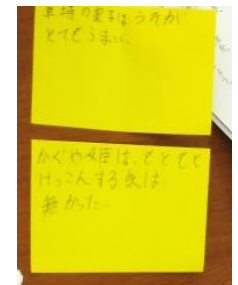 車持の皇子はうそが
とてもうまい。
かぐや姫は、もともと
けっこんする気は、
無かった。